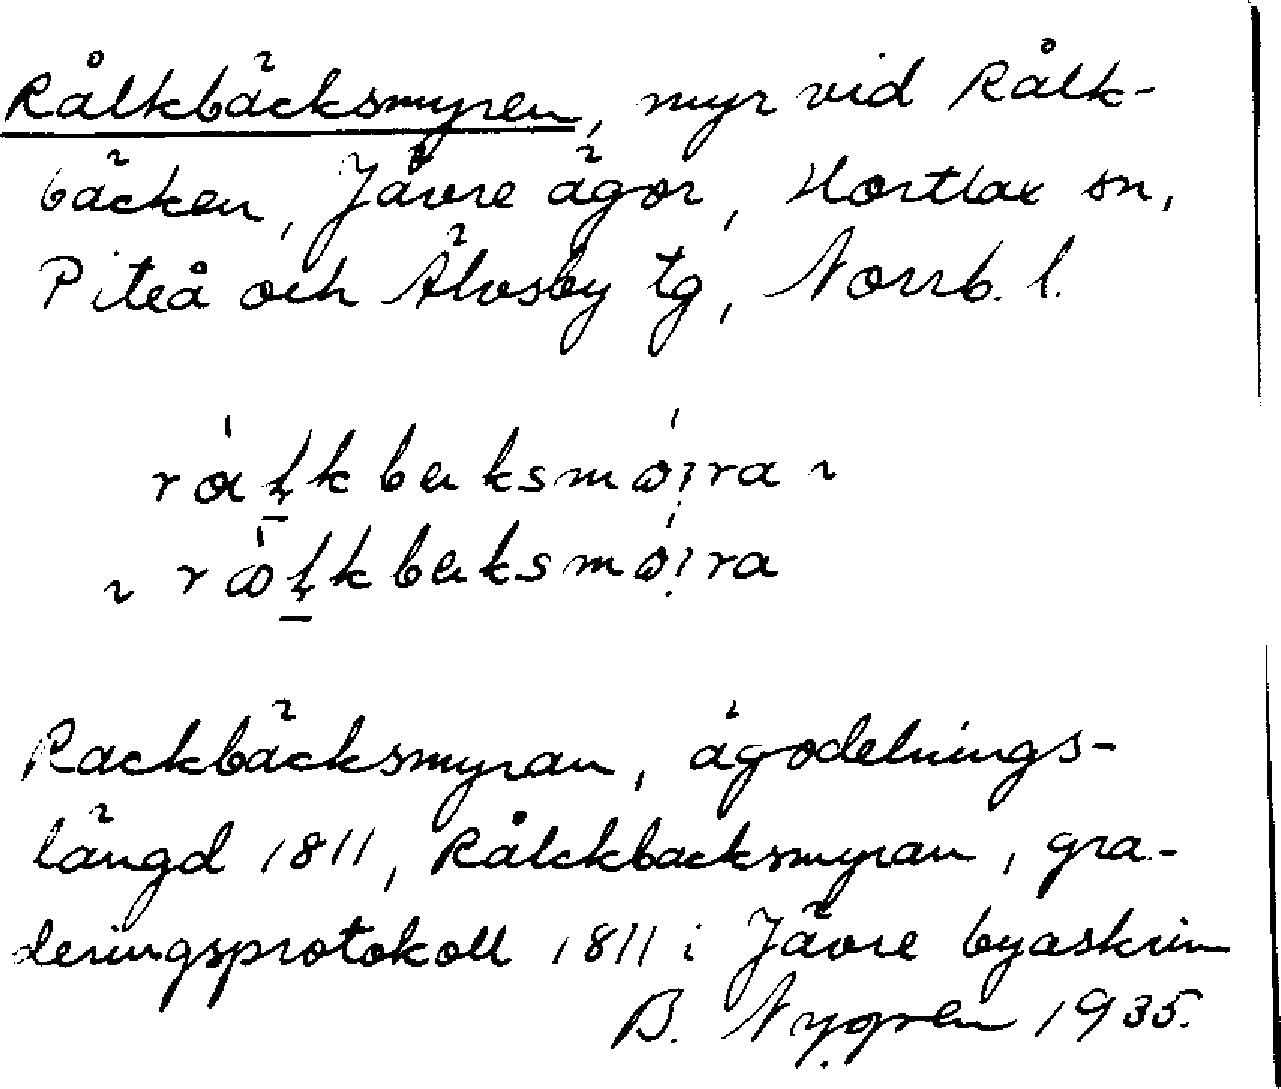 Rålkbäcksmyren, myr vid Rålk-
bäcken, Jävre ägor, Hortlax sn,
Piteå och Älvsby tg, Norrb. l.
Rackbäcksmyran, ägodelnings-
längd 1811, Rålckbacksmyran, gra-
deringsprotokoll 1811 i Jävre byaskrin
B. Nygren 1935.